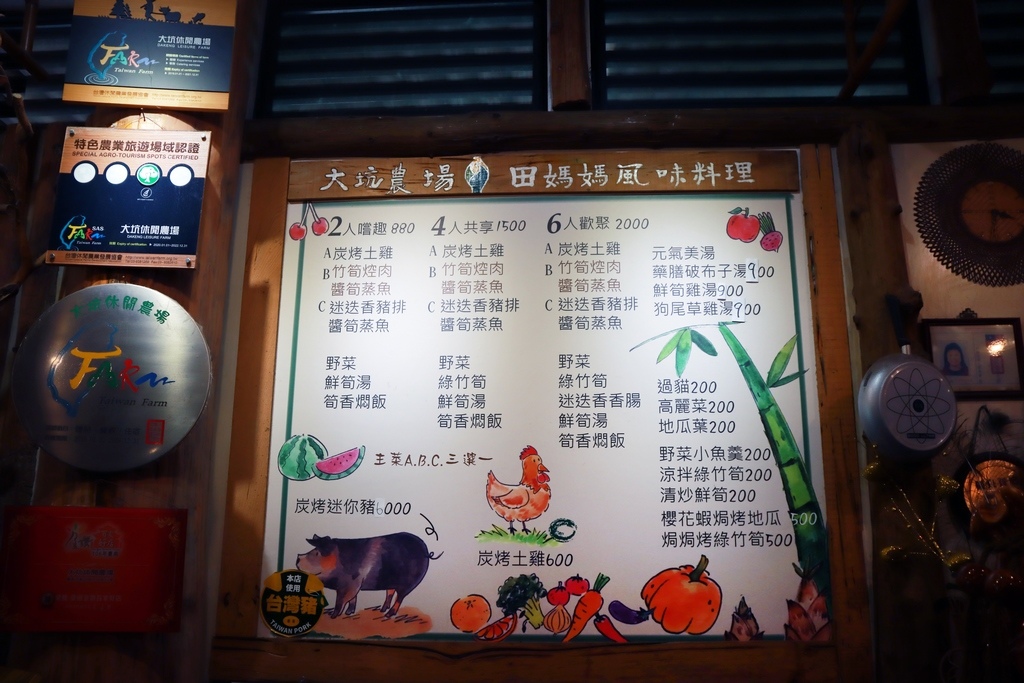 大坑休閒農場
DAKENG LEISURE FARM
FARM
Taiwan Farm
特色農業旅遊場域認證
SPECIAL AGRO-TOURISM SPOTS CERTIFIED
SAS
FARM
Taiwan Farm
大坑休閒農場
DAKENG LEISURE FARM
大坑休閒農場
FARM
Taiwan Farm
大坑農場 田媽媽風味料理
2人嚐趣 880
A炭烤土雞
B竹筍焢肉
醬筍蒸魚
C迷迭香豬排
醬筍蒸魚
野菜
鮮筍湯
筍香燜飯
4人共享1500
A炭烤土雞
B竹筍焢肉
醬筍蒸魚
C迷迭香豬排
醬筍蒸魚
野菜
綠竹筍
鮮筍湯
筍香燜飯
6人歡聚 2000
A炭烤土雞
B竹筍焢肉
醬筍蒸魚
C迷迭香豬排
醬筍蒸魚
野菜
綠竹筍
迷迭香香腸
鮮筍湯
筍香燜飯
主菜A.B.C.三選一
元氣美湯
藥膳破布子湯900
鮮筍雞湯900
狗尾草雞湯900
過貓200
高麗菜200
地瓜葉200
野菜小魚羹200
涼拌綠竹筍200
清炒鮮筍200
櫻花蝦焗烤地瓜500
焗焗烤綠竹筍500
炭烤迷你豬6000
炭烤土雞600
本店
使用
台灣豬
TAIWAN PORK